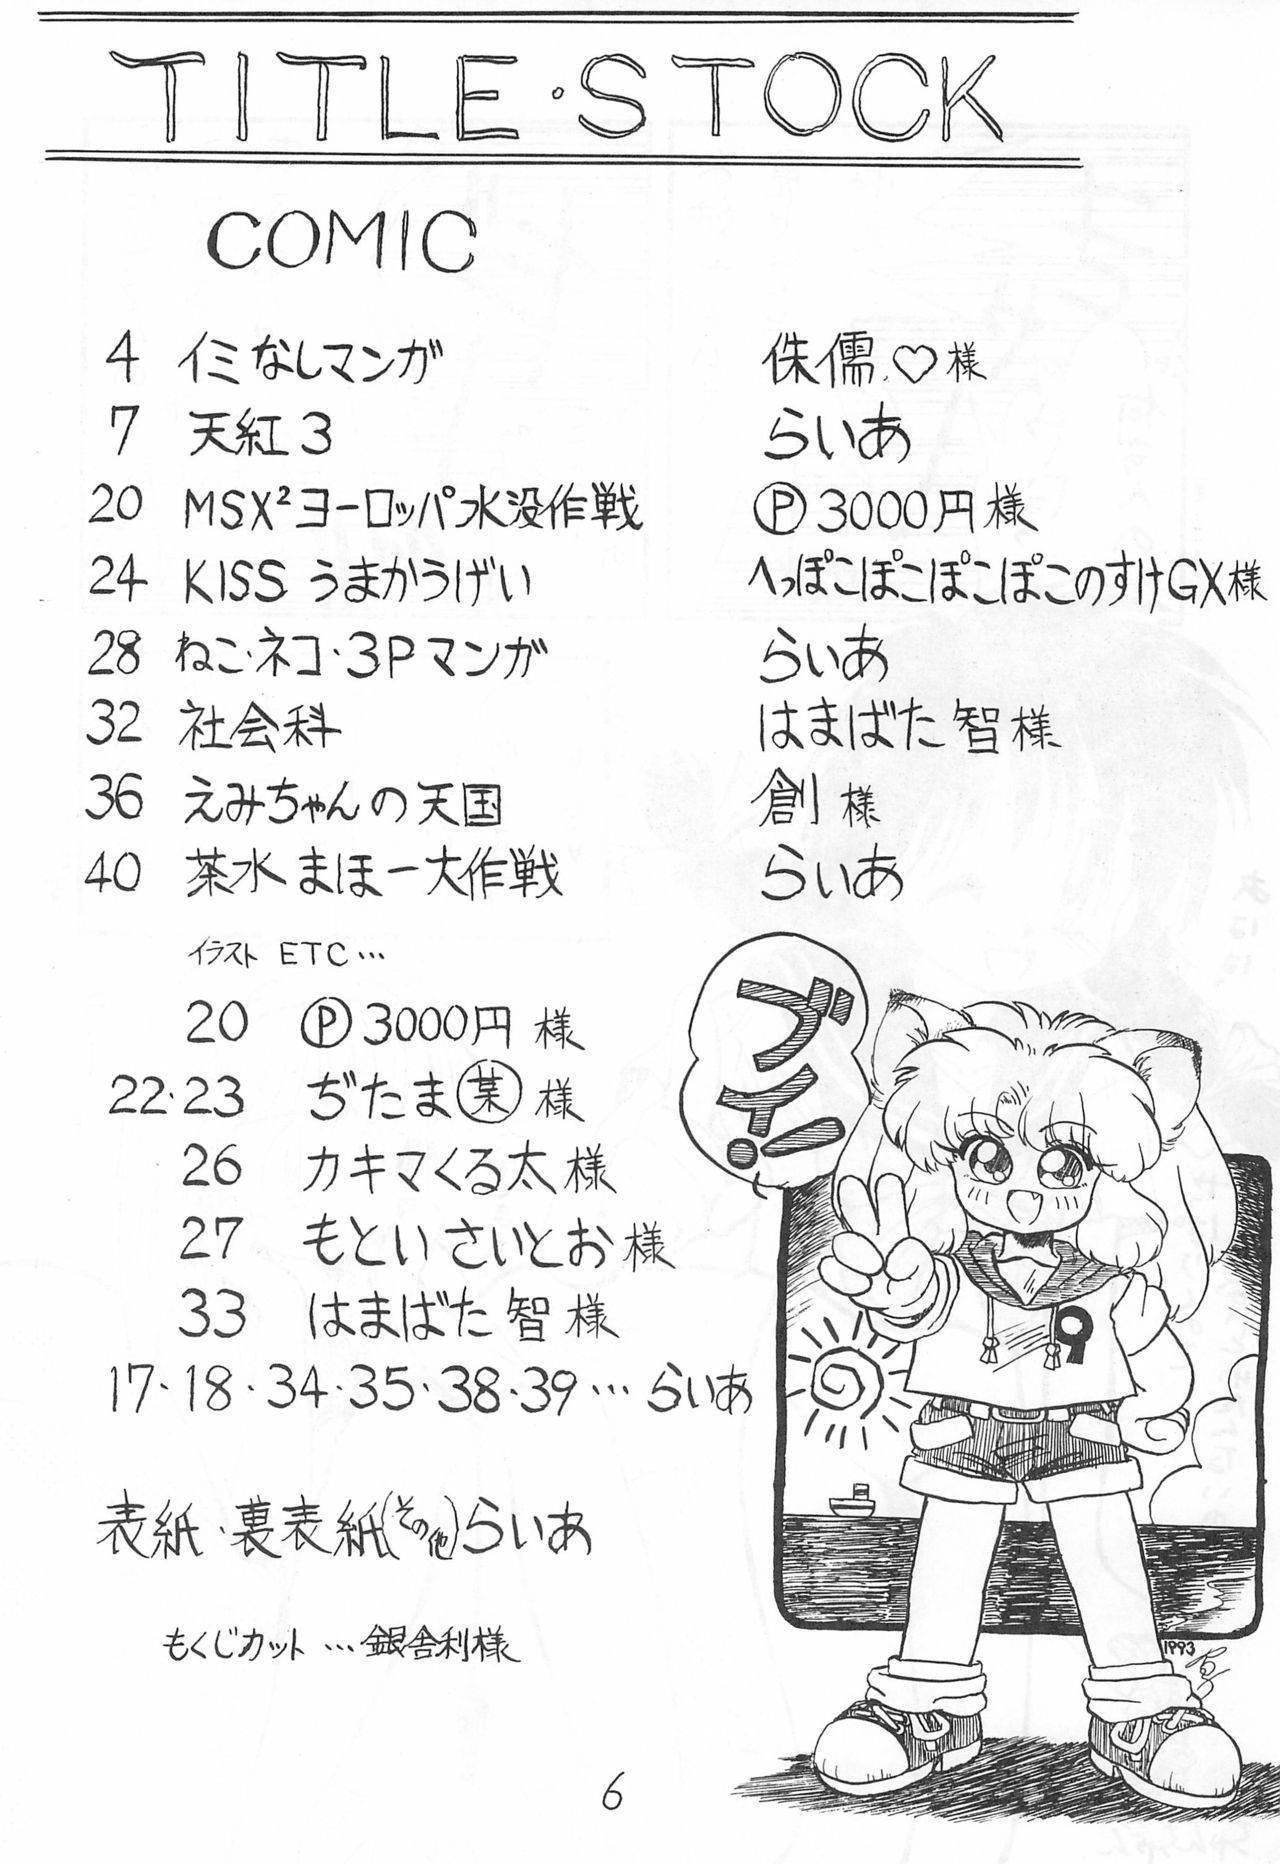 TITLE・STOCK
COMIC
4 イミなしマンガ 侏儒♡様
7 天紅3 らいあ
20 MSX²ヨーロッパ水没作戦 Ⓟ3000円様
24 KISSうまかうげい へっぽこぽこぽこぽこのすけGX様
28 ねこ・ネコ・3Pマンガ らいあ
32 社会科 はまばた智様
36 えみちゃんの天国 創様
40 茶水まほー大作戦 らいあ
イラスト ETC…
20 Ⓟ3000円様
22・23 ぢたま某様
26 カキマくる太様
27 もといさいとお様
33 はまばた智様
17・18・34・35・38・39…らいあ
表紙・裏表紙(その他)らいあ
もくじカット…銀舎利様
ブイ!
9
1993
6